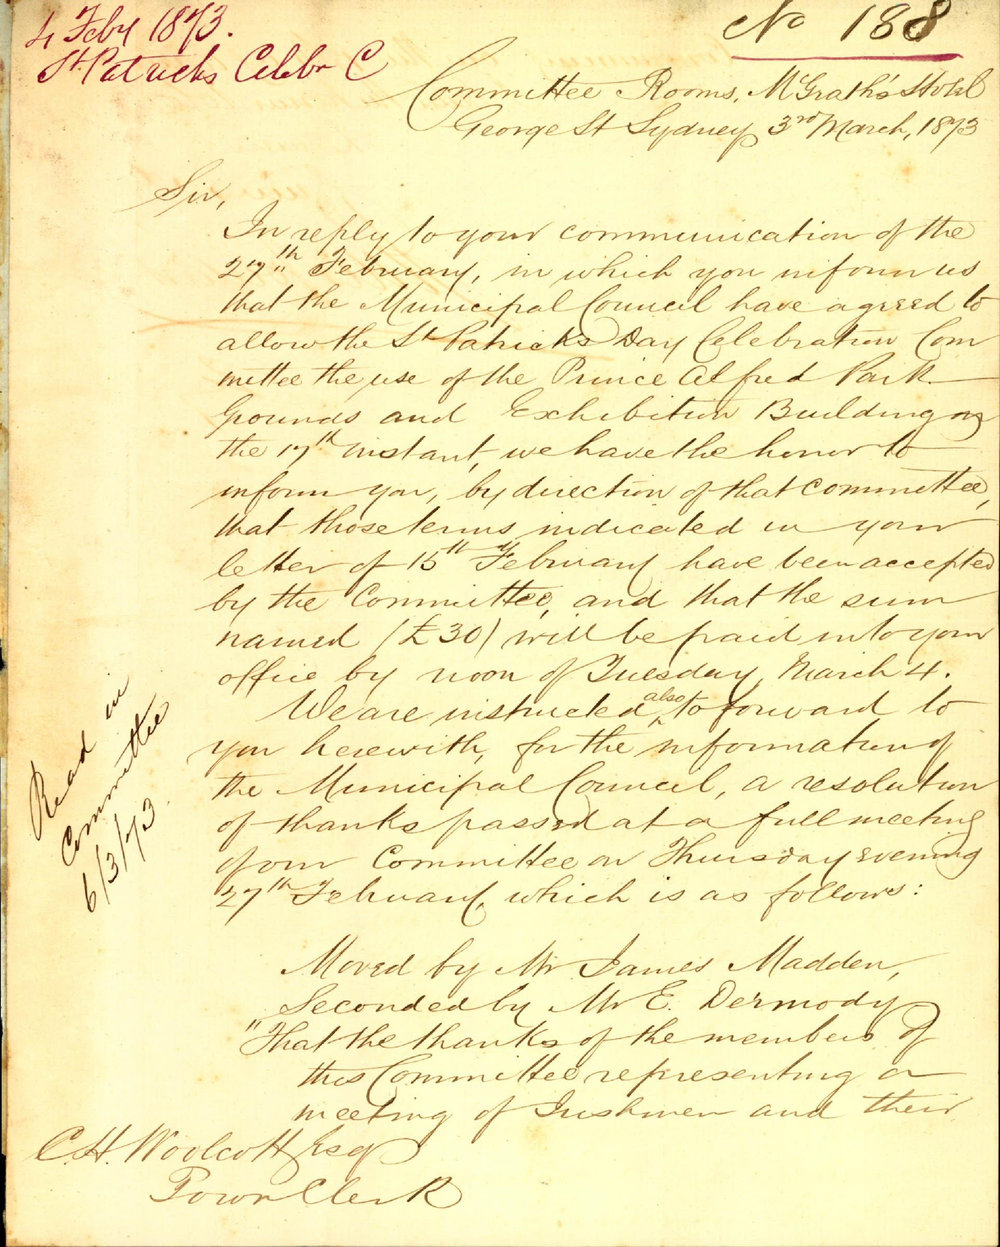 4 Feby 1873.
St. Patricks Celebr C
No 188
Committee Rooms, McGrath's Hotel
George St Sydney 3rd March, 1873
Sir,
In reply to your communication of the
27th February, in which you inform us
that the Municipal Council have agreed to
allow the St Patrick's Day Celebration Com
mittee the use of the Prince Alfred Park
Grounds and Exhibition Building on
the 17th instant, we have the honor to
inform you, by direction of that Committee,
that those terms indicated in your
letter of 15th February have been accepted
by the Committee, and that the sum
named (£30) will be paid into your
office by noon of Tuesday, March 4.
We are instructed also to forward to
you herewith, for the information of
the Municipal Council, a resolution
of thanks passed at a full meeting
of our Committee on Thursday evening
27th February, which is as follows:
Moved by Mr James Madden,
Seconded by Mr E. Dermody
"That the thanks of the members of
this Committee representing a
meeting of Irishmen and their
C.H. Woolcott Esq
Town Clerk
Read in
Committee
6/3/73